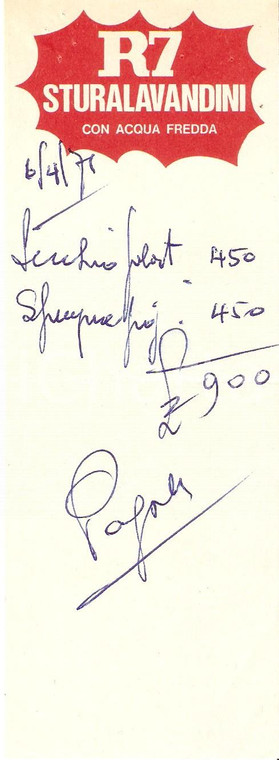 R7
STURALAVANDINI
CON ACQUA FREDDA
6/4/71
Secchio 450
450
£ 900
Pagato